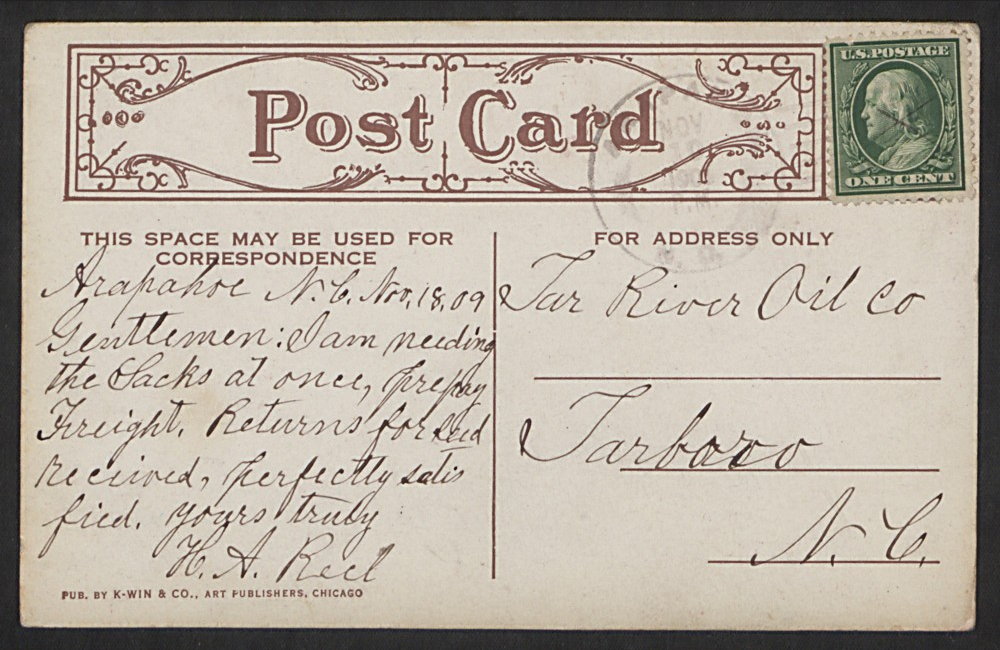 Post Card
U.S. POSTAGE
ONE CENT
NOV
P.M.
THIS SPACE MAY BE USED FOR
CORRESPONDENCE
Arapahoe N.C. Nov. 18, 09
Gentlemen: I am needing
the Sacks at once, prepay
Freight. Returns for seed
received, perfectly satis
fied. yours truly
H. A. Reel
PUB. BY K-WIN & CO., ART PUBLISHERS, CHICAGO
FOR ADDRESS ONLY
Tar River Oil Co
Tarboro
N. C.